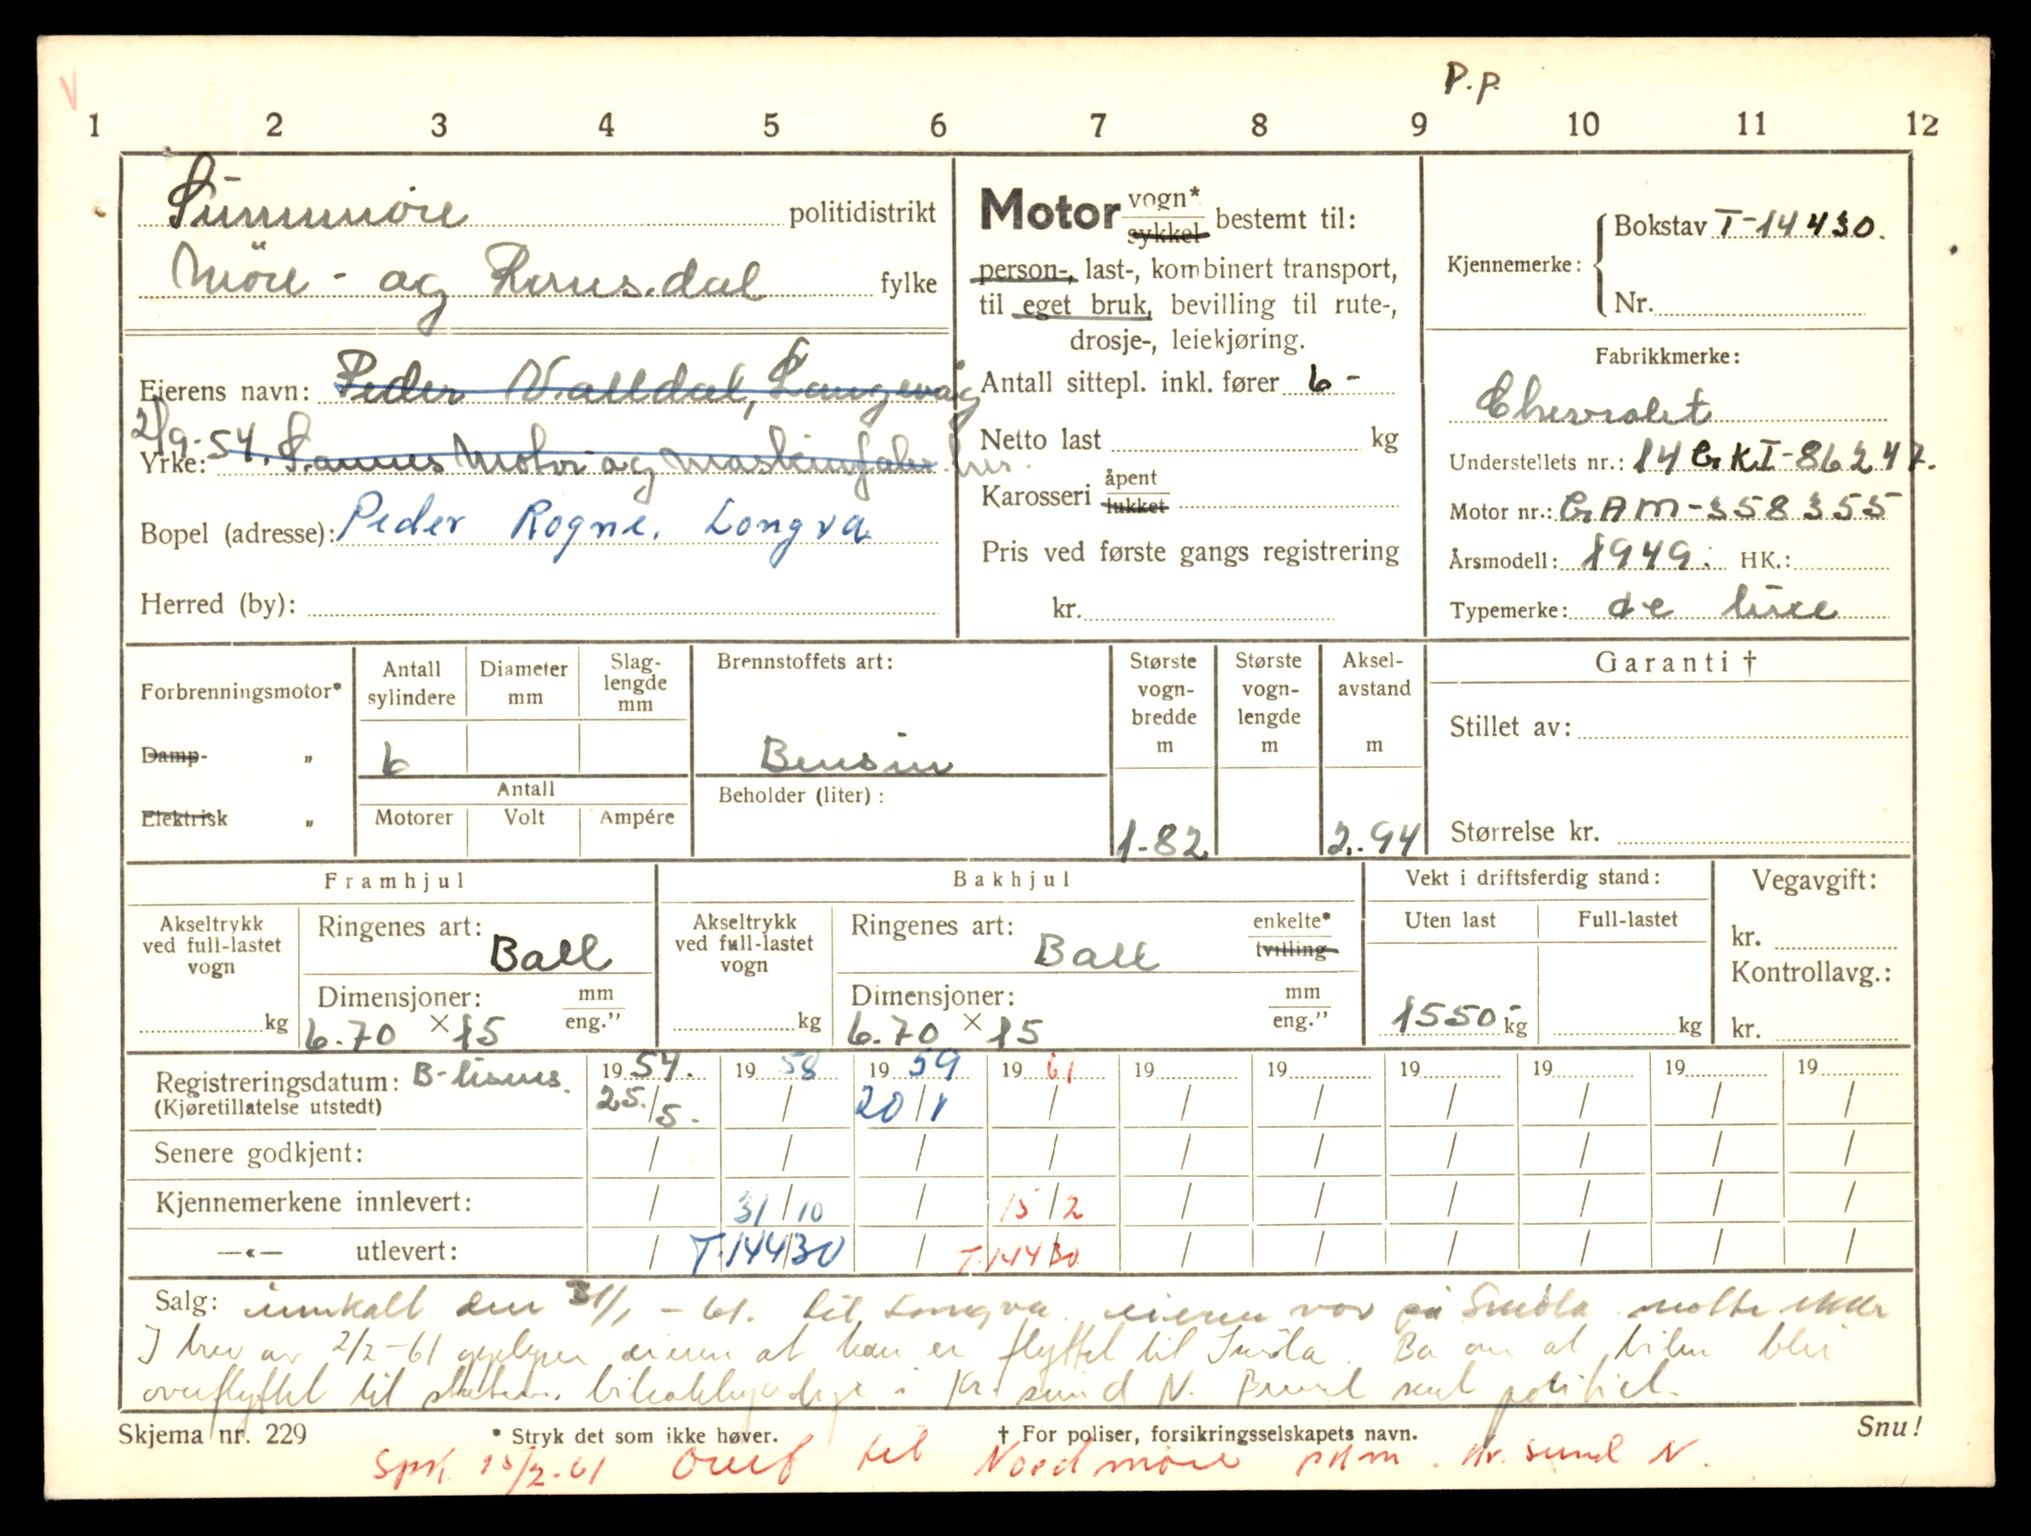 P.p.
1 2 3 4 5 6 7 8 9 10 11 12
Sunnmöre politidistrikt
Möre- og Romsdal fylke
Eierens navn: Peder Valldal, Langevåg
2/9-54.
Yrke: Motor og
Bopel (adresse): Peder Rogne, Longva
Herred (by):
Motor vogn* sykkel bestemt til:
person-, last-, kombinert transport,
til eget bruk, bevilling til rute-,
drosje-, leiekjøring.
Antall sittepl. inkl. fører 6-
Netto last kg
Karosseri åpent lukket
Pris ved første gangs registrering
kr.
Kjennemerke: Bokstav T-14430.
Nr.
Fabrikkmerke:
Chevrolet
Understellets nr.: 14GKI-86247.
Motor nr.: GAM-358355
Årsmodell: 1949. HK.:
Typemerke: de luxe
Forbrenningsmotor*
Damp- „
Elektrisk „
Antall sylindere Diameter mm Slag-lengde mm
6
Antall
Motorer Volt Ampére
Brennstoffets art:
Bensin
Beholder (liter) :
Største vogn-bredde m
1.82
Største vogn-lengde m
Aksel-avstand m
2.94
Garanti †
Stillet av:
Størrelse kr.
Framhjul
Akseltrykk ved full-lastet vogn
kg
Ringenes art:
Ball
Dimensjoner: mm eng.”
6.70 × 15
Bakhjul
Akseltrykk ved full-lastet vogn
kg
Ringenes art: enkelte* tvilling
Ball
Dimensjoner: mm eng.”
6.70 × 15
Vekt i driftsferdig stand:
Uten last Full-lastet
1550- kg kg
Vegavgift:
kr.
Kontrollavg.:
kr.
Registreringsdatum: B-lisens. 1954. 1958 1959 1961 19 19 19 19 19 19
(Kjøretillatelse utstedt) 25./5. / 20/1 / / / / / / /
Senere godkjent: / / / / / / / / / /
Kjennemerkene innlevert: / 31/10 / 15/2 / / / / / /
—«— utlevert: / T.14430 / T.14430 / / / / / /
Salg: innkalt den 31/1-61. til Longva eieren var på Smöla
I brev av 2/2-61 eieren at han er flyttet til Smöla. Ba om at bilen blir
overflyttet til i Kr.sund N. politiet.
Skjema nr. 229 * Stryk det som ikke høver. † For poliser, forsikringsselskapets navn. Snu!
15/2-61 Overf til Nordmöre Kr. sund N.